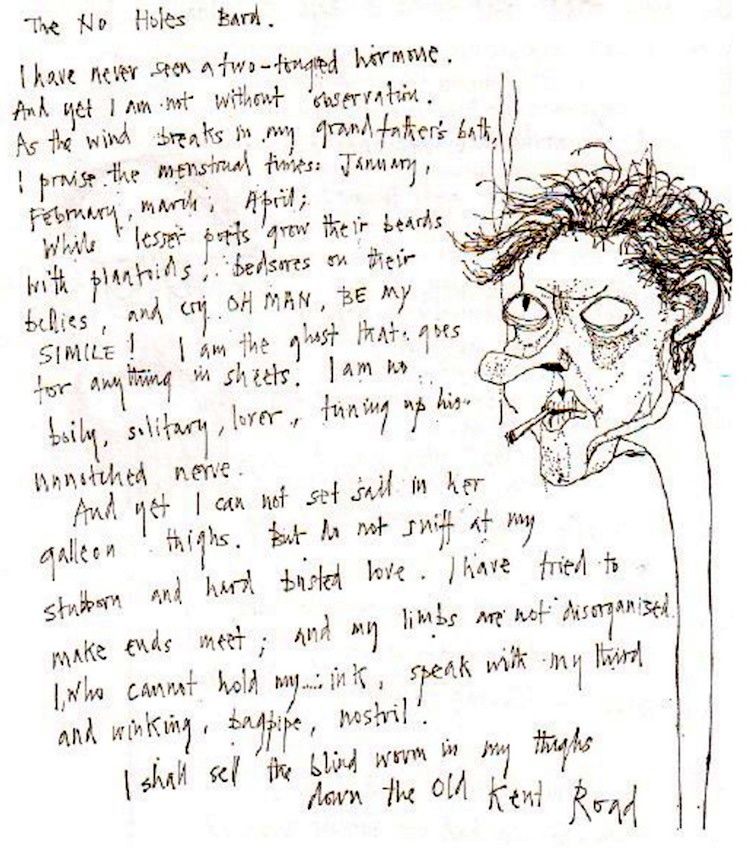 The No Holes Bard.
I have never seen a two-tongued hormone.
And yet I am not without observation.
As the wind breaks in my grandfather's bath,
I praise the menstrual times: January,
February, march, April;
While lesser poets grow their beards
with plantoids, bedsores on their
bellies, and cry OH MAN, BE my
SIMILE! I am the ghost that goes
for anything in sheets. I am no
boily, solitary, lover, tuning up his
unnotched nerve.
And yet I can not set sail in her
galleon thighs. But do not sniff at my
stubborn and hard busted love. I have tried to
make ends meet; and my limbs are not disorganised.
I, who cannot hold my.....ink, speak with my third
and winking, bagpipe, nostril.
I shall sell the blind worm in my thighs
down the Old Kent Road